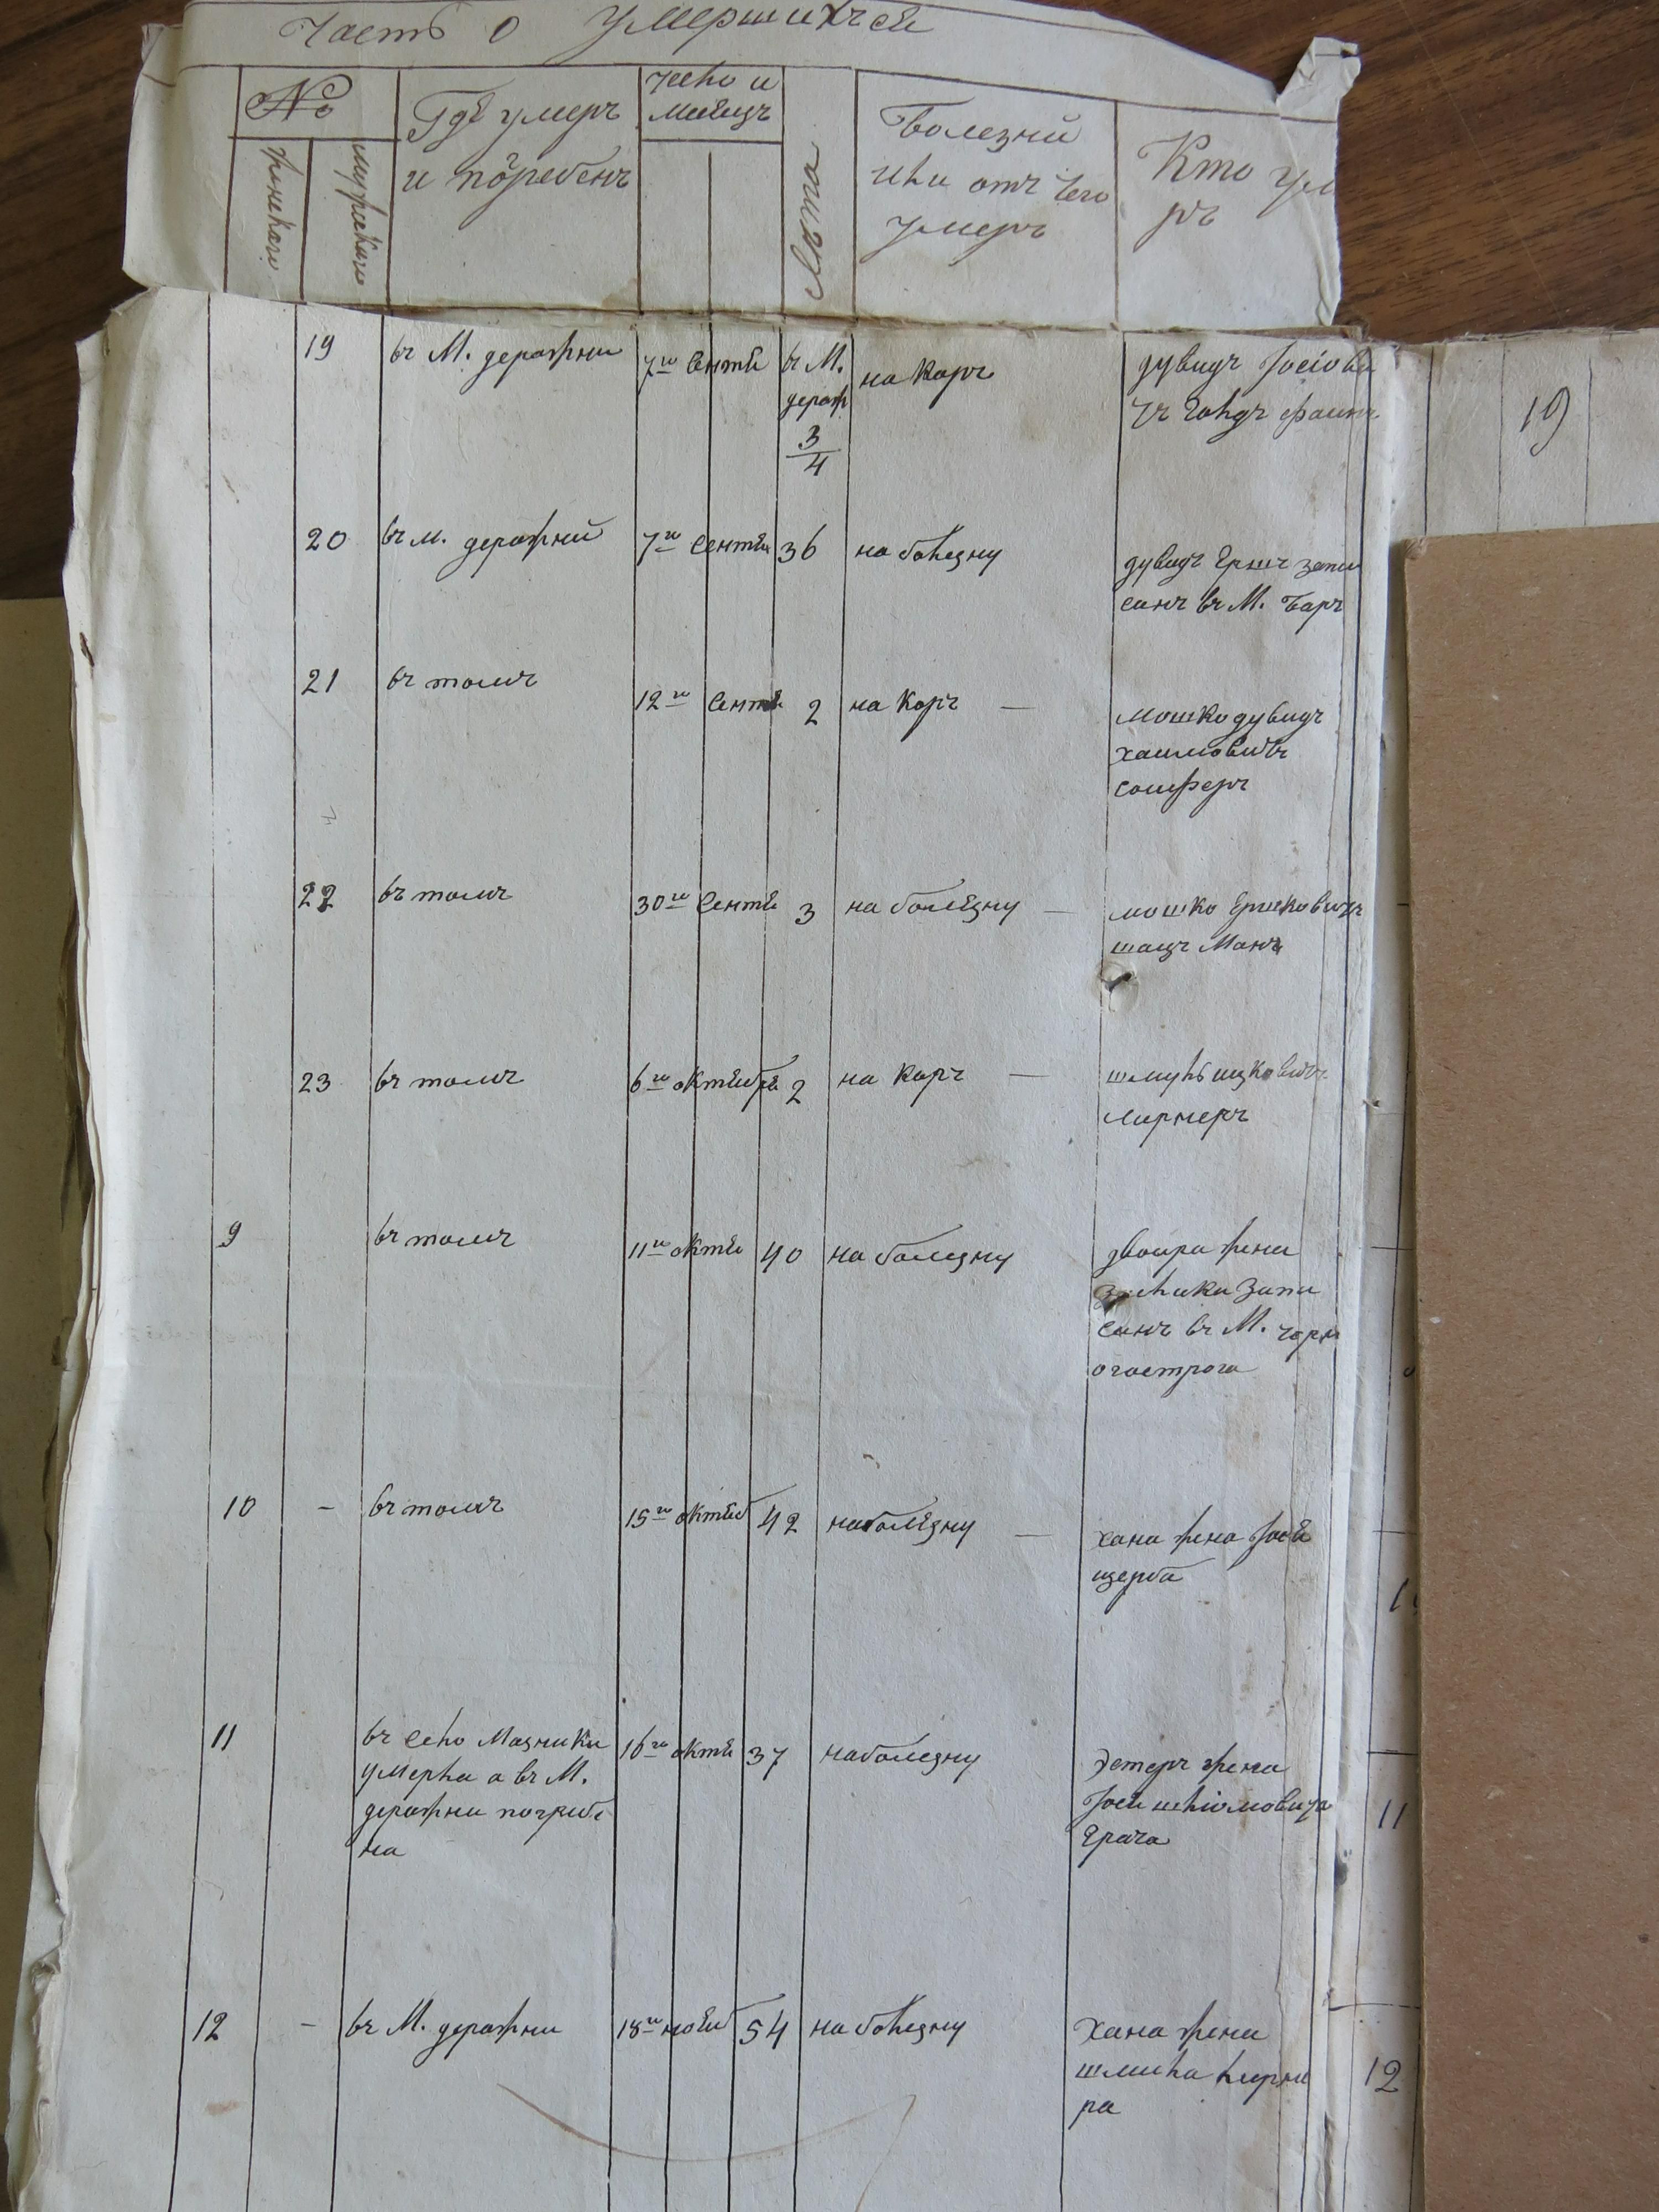 Часть о умершихъсѣ
№
женскаго
мужескаго
Гдѣ умеръ
и погребенъ
Число и
мѣсяцъ
Лѣта
Болезнй
или отъ чего
умеръ
Кто уме
ръ
19 въ М. деражни 7го Сентѣ въ М. дераж 3/4 на коръ
дувидъ Іосіови
чъ Голдъ файнъ
19
20 въ м. деражнй 7го Сентѣ 36 на болезну
дувидъ Ершъ запи
санъ въ М. Баръ
21 въ томъ 12го Сентѣ 2 на коръ —
мошко дувидъ
хаимовичъ
соиферъ
22 въ томъ 30го Сентѣ 3 на болѣзну —
мошко Ершковичъ
шацъ Манъ
23 въ томъ 6го октѣбрѣ 2 на коръ —
шмуль ицковичъ
лирнеръ
9 въ томъ 11го октѣ 40 на болезну
двоира жена
запи
санъ въ М. чорн
огоострога
10 – въ томъ 15го октѣб 42 на болѣзну —
хана жена Іосѣ
щерба
11 въ село Мазники 16го октѣ 37 на болезну
умерла а въ М.
деражни погребе
на
Эстеръ жена
Іосѣ шліомовича
Ерача
11
12 – въ М. деражни 18го ноѣб 54 на болезну
Хана жена
шмила лирне
ра
12